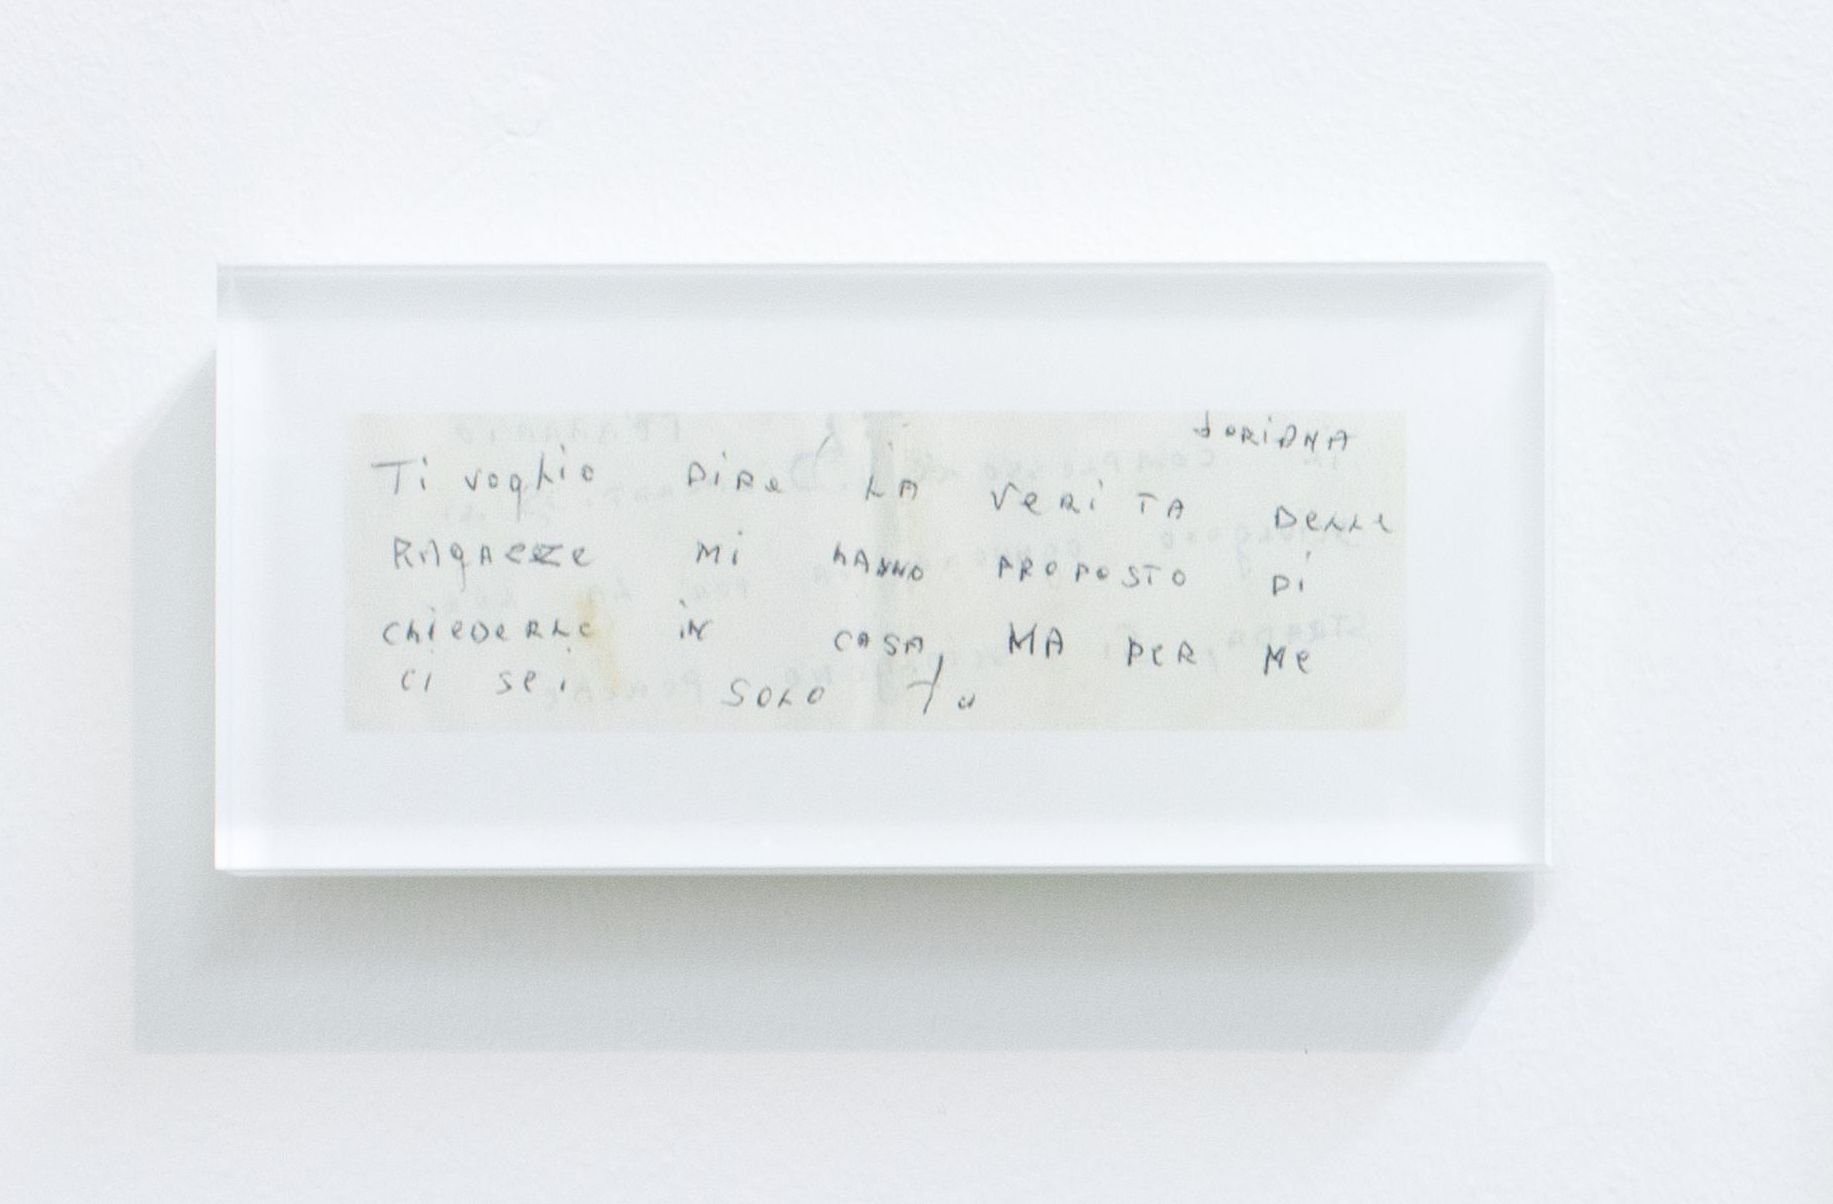 doRiANA
Ti voglio DiRe LA VeRiTA DeLLe
RAgAzze Mi hANNO PROPOSTO Di
ChieDeRLe iN CASA, MA PER Me
Ci Sei SOLO Tu